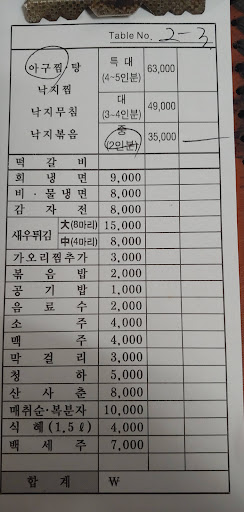 Table No. 2-3
아구찜·탕
낙지찜
낙지무침
낙지볶음
특대 (4~5인분) 63,000
대 (3~4인분) 49,000
중 (2인분) 35,000
떡갈비
회냉면 9,000
비·물냉면 8,000
감자전 8,000
새우튀김 大(8마리) 15,000
中(4마리) 8,000
가오리찜추가 3,000
볶음밥 2,000
공기밥 1,000
음료수 2,000
소주 4,000
맥주 4,000
막걸리 3,000
청하 5,000
산사춘 8,000
매취순·복분자 10,000
식혜(1.5ℓ) 4,000
백세주 7,000
합계 ₩